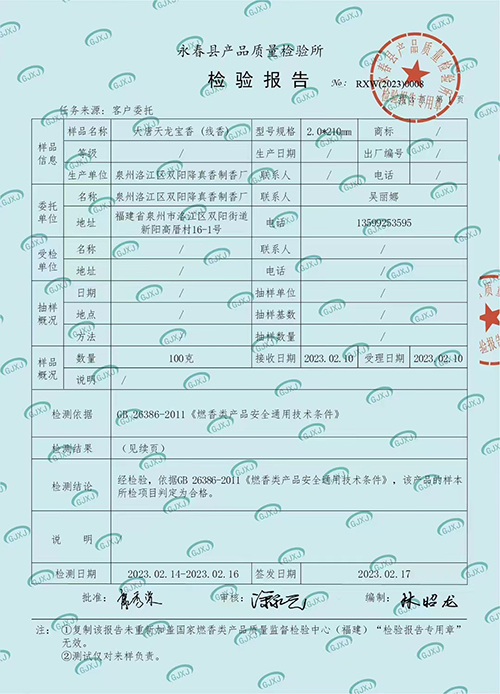 永春县产品质量检验所
检验报告
No: RXW(2023)0008
检验报告专用章
任务来源: 客户委托
样品信息 样品名称 大唐天龙宝香（线香） 型号规格 2.0*210mm 商标 /
等级 / 生产日期 / 出厂编号 /
生产单位 泉州洛江区双阳降真香制香厂 联系人 / 电话 /
委托单位 名称 泉州洛江区双阳降真香制香厂 联系人 吴丽娜
地址 福建省泉州市洛江区双阳街道
新阳高厝村16-1号 电话 13599253595
受检单位 名称 / 联系人 /
地址 / 电话 /
抽样概况 日期 / 抽样单位 /
地点 / 抽样基数 /
方法 / 抽样数量 /
样品概况 数量 100克 接收日期 2023.02.10 受理日期 2023.02.10
说明 /
检测依据 GB 26386-2011《燃香类产品安全通用技术条件》
检测结果 （见续页）
检测结论 经检验，依据GB 26386-2011《燃香类产品安全通用技术条件》，该产品的样本
所检项目判定为合格。
说 明 /
检测日期 2023.02.14-2023.02.16 签发日期 2023.02.17
批准: 审核: 编制: 林昭龙
注: ①复制该报告未重新加盖国家燃香类产品质量监督检验中心（福建）“检验报告专用章”
无效。
②测试仅对来样负责。
GJXJ